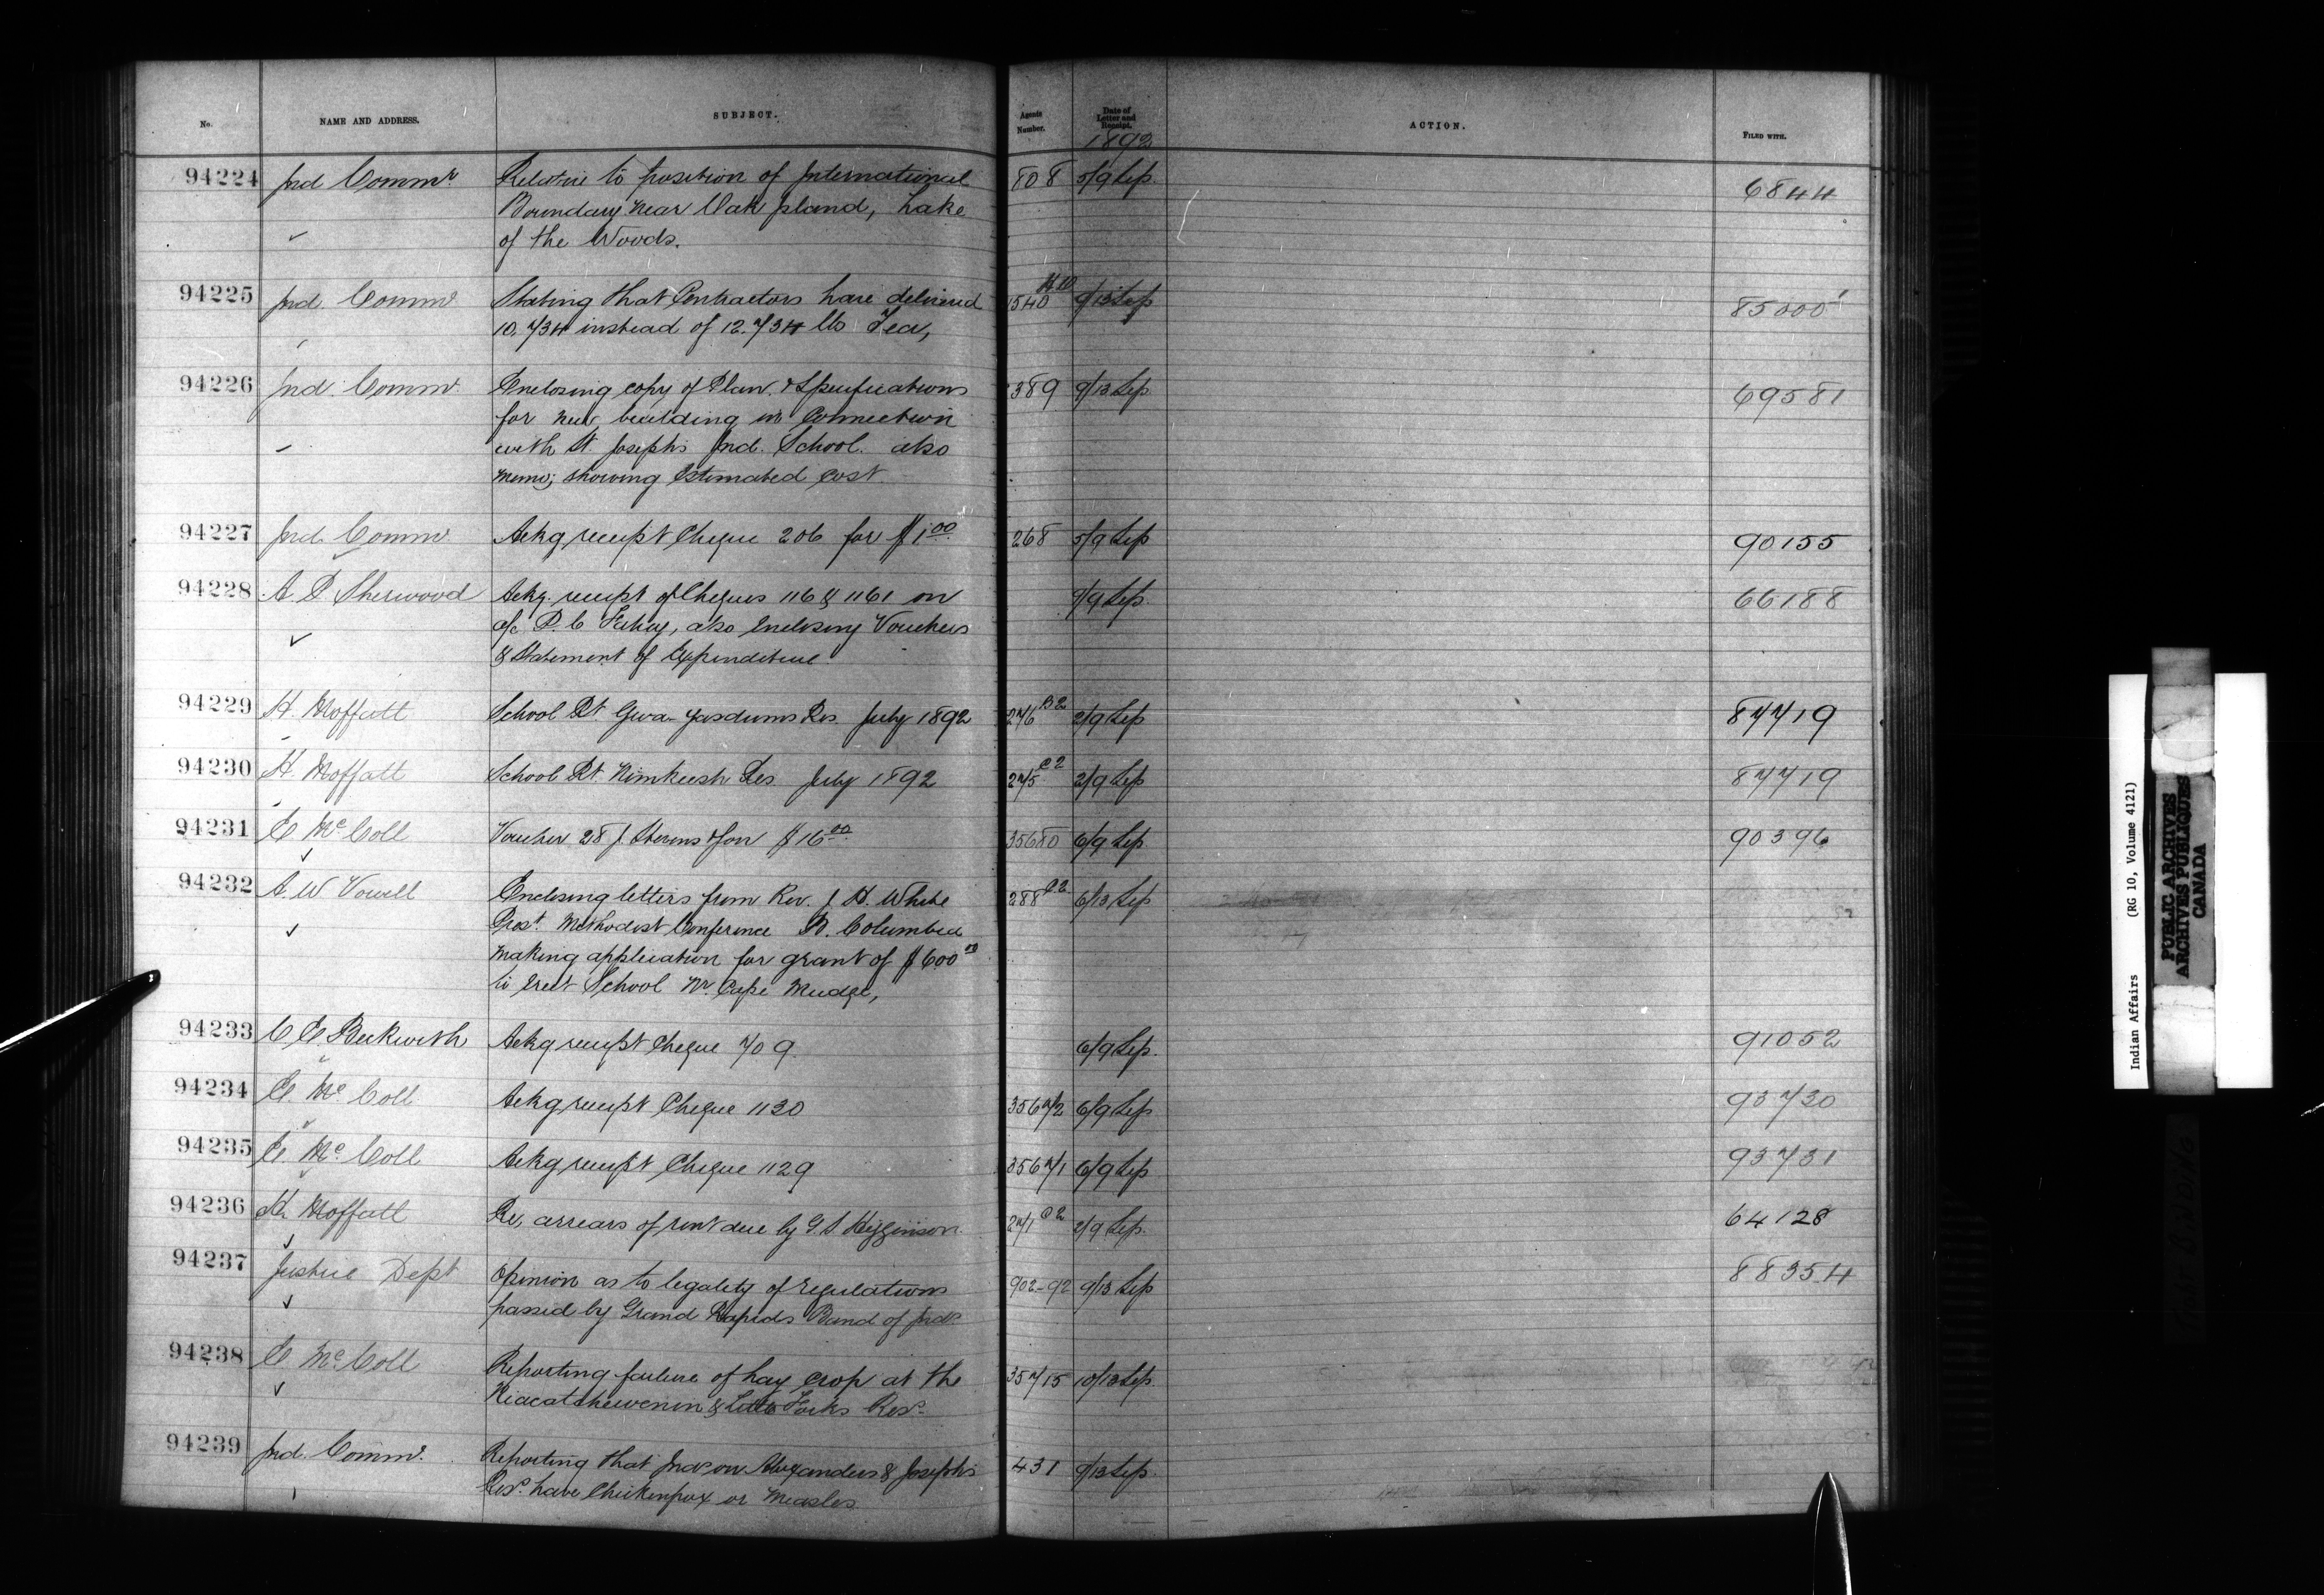 No. NAME AND ADDRESS. SUBJECT. Agents Number. Date of Letter and Receipt. ACTION. FILED WITH.
1892
94224 Ind Commr. Relative to position of International 808 5/9 Sep. 6844
Boundary near Oak Island, Lake
of the Woods.
94225 Ind. Commr Stating that Contractors have delivered 1540 9/13 Sep 85000
10.734 instead of 12.734 lbs Tea,
94226 Ind. Commr. Enclosing copy of Plan & Specifications 389 9/13 Sep. 69581
for new building in Connection
with St. Joseph's Ind. School. also
Memo; showing Estimated Cost.
94227 Ind. Commr Ackg receipt Cheque 206 for $1.00 268 5/9 Sep 90155
94228 A. P. Sherwood Ackg. receipt of Cheques 116 & 1161 on 9/9 Sep. 66188
a/c P. C. Fahay, also Enclosing Vouchers
& Statement of Expenditure
94229 H. Moffatt School Rt Gwa-yasdums Res. July 1892 276 C2 2/9 Sep 87719
94230 H. Moffatt School Rt. Nimkeesh Res. July 1892 275 C2 2/9 Sep 87719
94231 E McColl Voucher 28 J. Stevens & Son $16.00 35680 6/9 Sep. 90396
94232 A. W. Vowell Enclosing letters from Rev. J. H. White 288 C2 6/13 Sep
Prest. Methodist Conference B. Columbia
making application for grant of $600.00
to erect School Nr. Cape Mudge,
94233 C E Beckwith Ackg receipt Cheque 709. 6/9 Sep. 91052
94234 E. McColl Ackg receipt Cheque 1130 35672 6/9 Sep 93730
94235 E. McColl Ackg receipt Cheque 1129 35671 6/9 Sep 93731
94236 H. Moffatt Re, arrears of rent due by G. S. Higginson. 271 C2 2/9 Sep. 64128
94237 Justice Dept Opinion as to legality of regulations 902-92 9/13 Sep 88354
passed by Grand Rapids Band of Inds.
94238 E. McColl Reporting failure of hay crop at the 35715 10/13 Sep.
Niacatchewenin & Little Forks Ress.
94239 Ind. Commr. Reporting that Inds on Alexanders & Joseph's 431 9/13 Sep.
Ress. have Chickenpox or Measles.
Indian Affairs (RG 10, Volume 4121)
PUBLIC ARCHIVES
ARCHIVES PUBLIQUES
CANADA